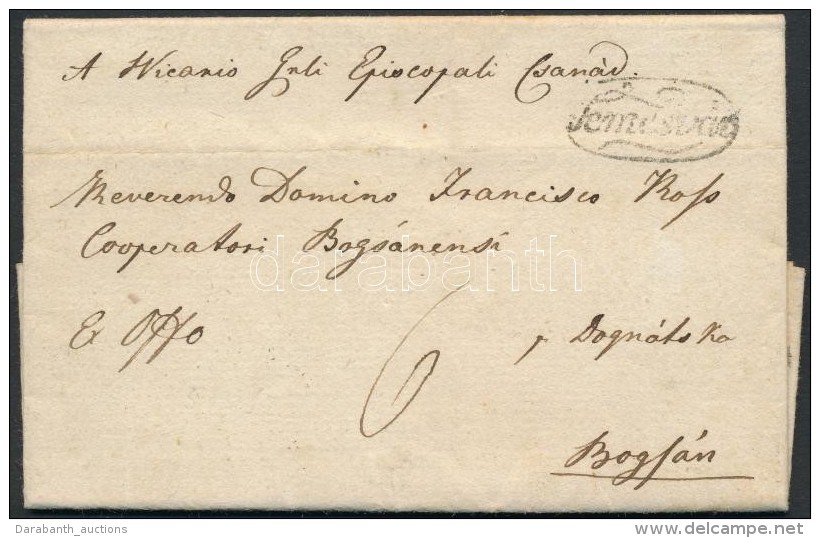 A Vicario Gnli Episcopali Csanád.
Temesvár
Reverendo Domino Francisco Koſs
Cooperatori Bogsánensi
darabanth
Ex Offo
6
p Dognátska
Bogſán
Darabanth_auctions
delcampe.net